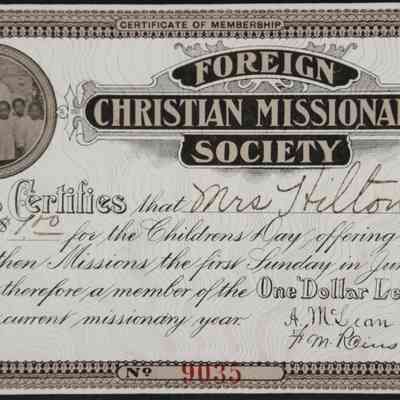 CERTIFICATE OF MEMBERSHIP
FOREIGN
CHRISTIAN MISSIONA
SOCIETY
Certifies that Mrs Hilton
$1.00 for the Childrens Day offering
then Missions the first Sunday in Jun
therefore a member of the One Dollar Le
current missionary year.
A. McLean
F. M. Rains
No 9035